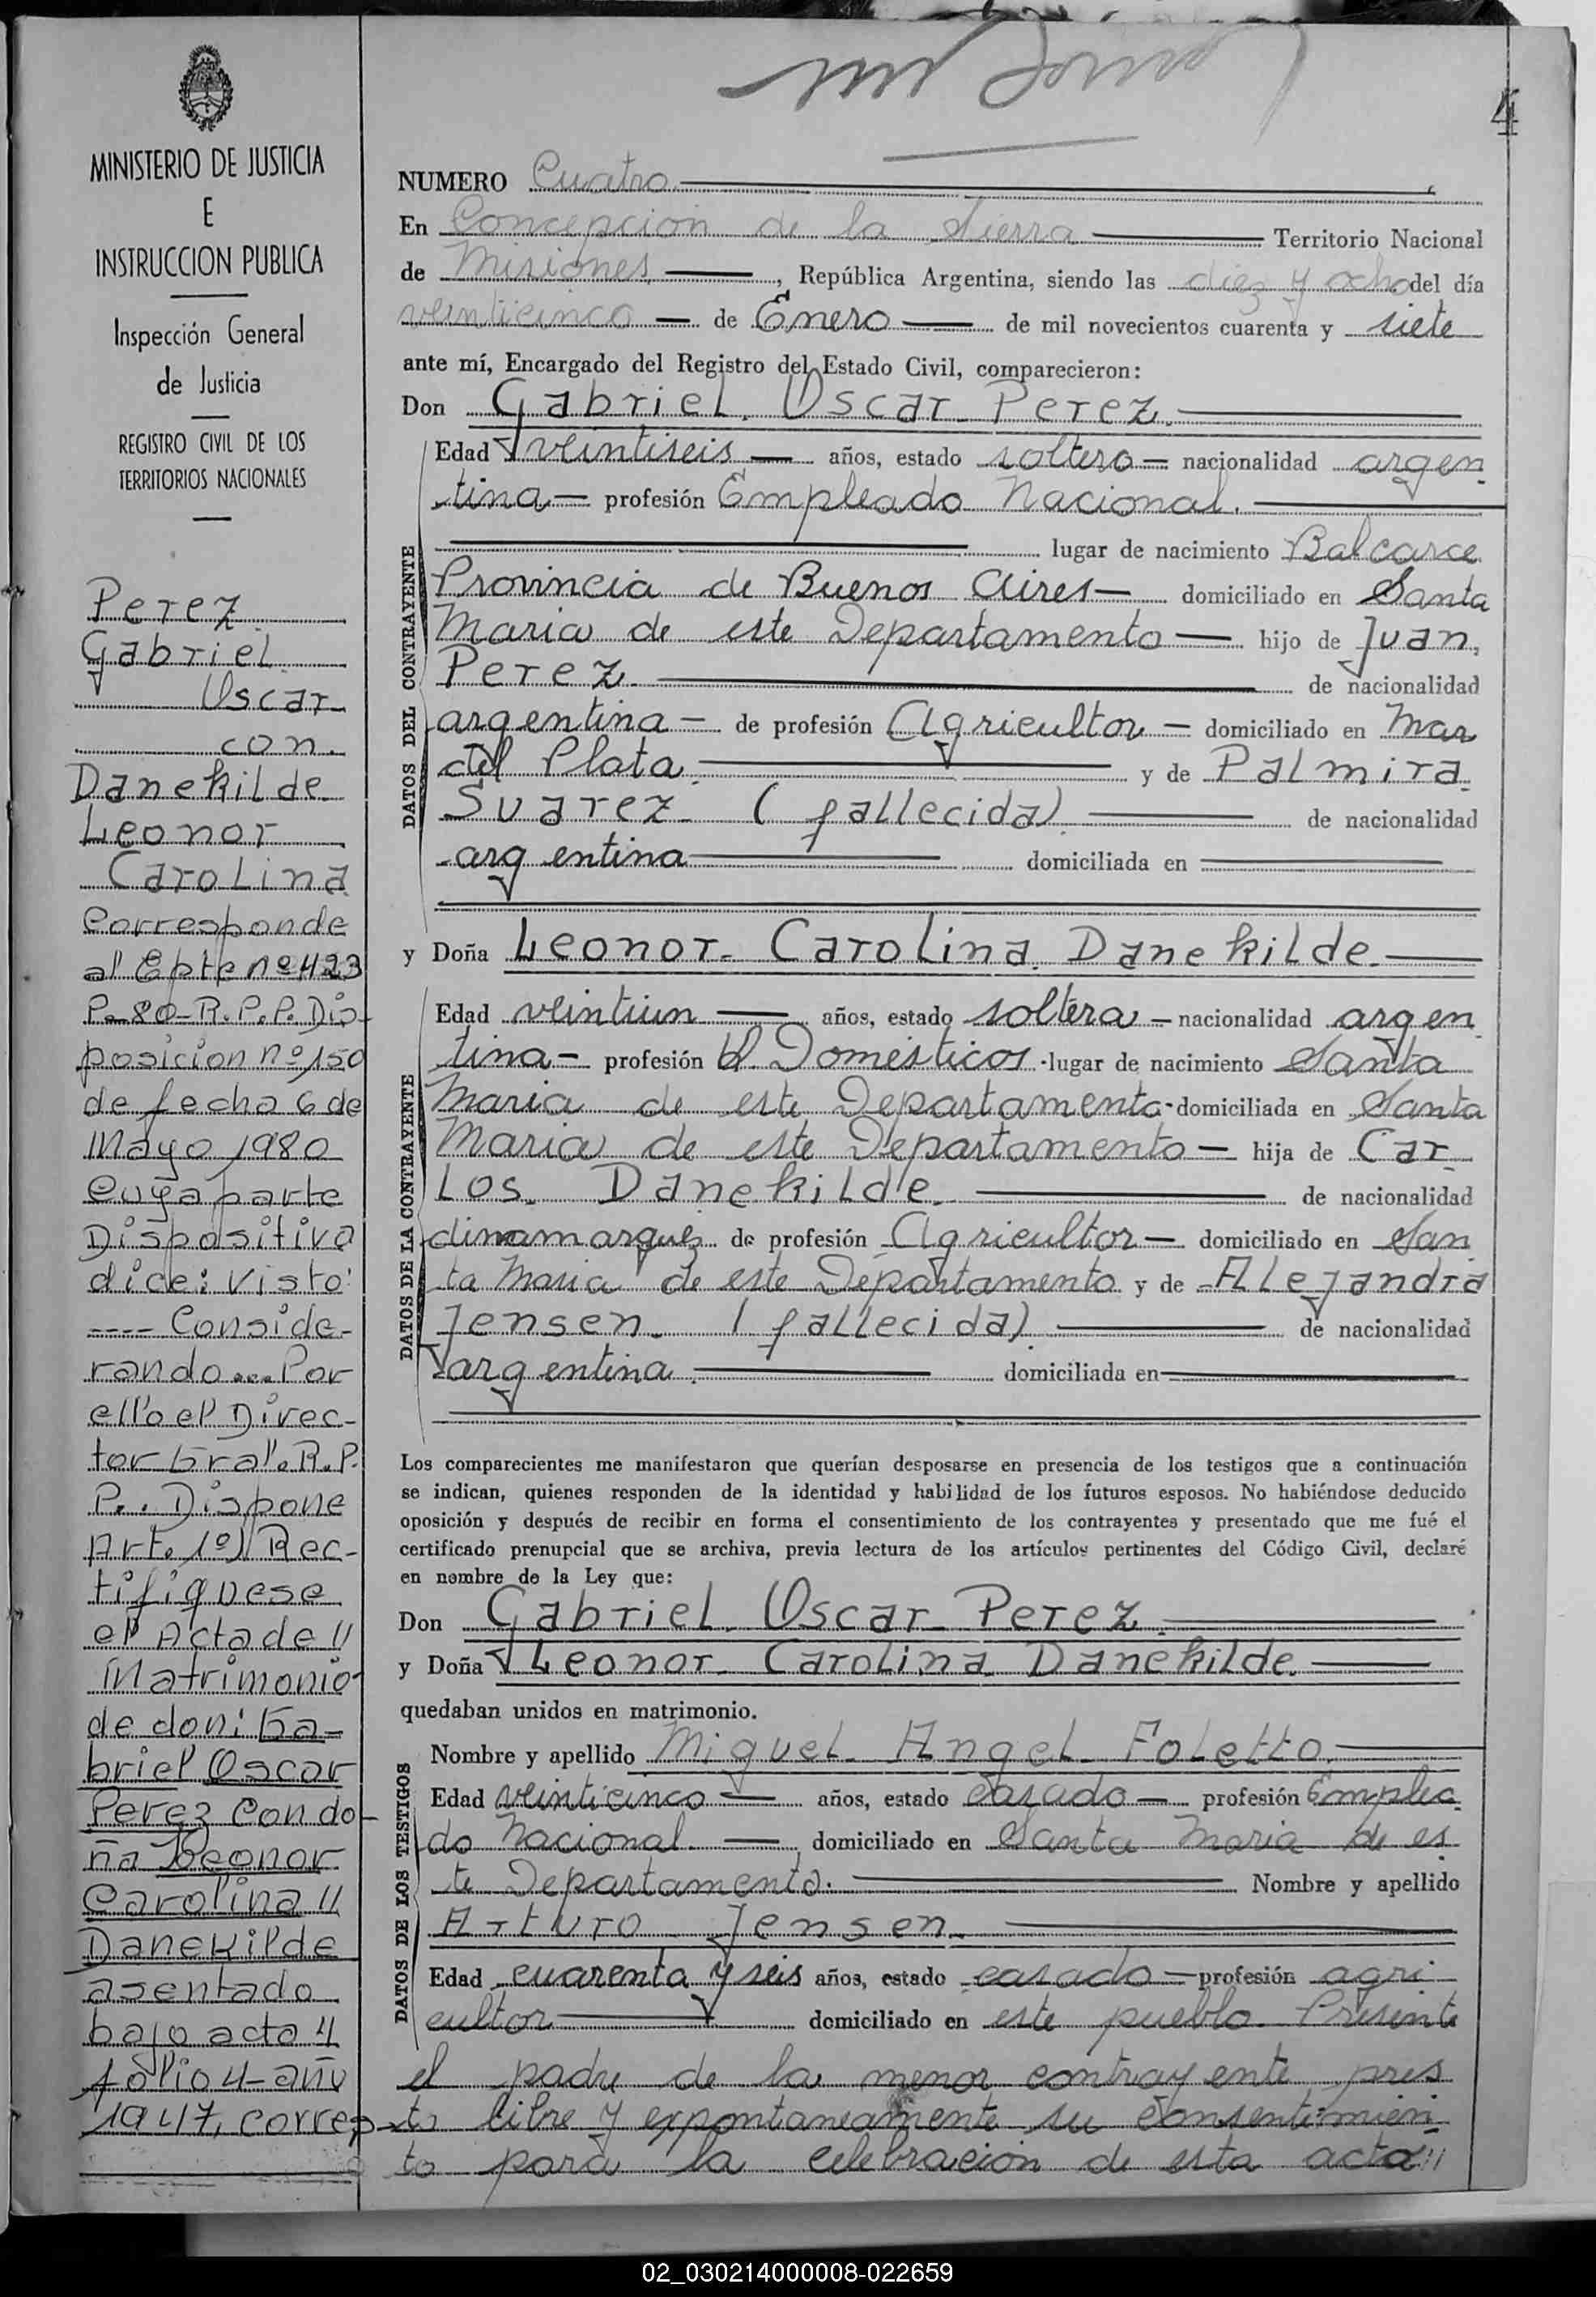 4
MINISTERIO DE JUSTICIA
E
INSTRUCCION PUBLICA
Inspección General
de Justicia
REGISTRO CIVIL DE LOS
TERRITORIOS NACIONALES
Perez
Gabriel
Oscar
con
Danekilde
Leonor
Carolina
Corresponde
al Epte nº 423
P-80-R.P.P. Dis-
posicion nº 150
de fecha 6 de
Mayo 1980
cuya parte
Dispositiva
dice: Visto:
---- Conside-
rando... Por
ello el Direc-
tor Gral. R.P.
P.. Dispone
Art. 1º) Rec-
tifiquese
el Acta de //
Matrimonio
de don: Ga-
briel Oscar
Perez con do-
ña Leonor
Carolina //
Danekilde
asentado
bajo acta 4
folio 4-año
1947, corres-
NUMERO Cuatro
En Concepcion de la Sierra Territorio Nacional
de Misiones, República Argentina, siendo las diez y ocho del día
veinticinco de Enero de mil novecientos cuarenta y siete
ante mí, Encargado del Registro del Estado Civil, comparecieron:
Don Gabriel Oscar Perez
DATOS DEL CONTRAYENTE
Edad veintiseis años, estado soltero nacionalidad argen
tina profesión Empleado Nacional.
lugar de nacimiento Balcarce
Provincia de Buenos Aires domiciliado en Santa
Maria de este Departamento hijo de Juan
Perez de nacionalidad
argentina de profesión Agricultor domiciliado en Mar
del Plata y de Palmira
Suarez (fallecida) de nacionalidad
argentina domiciliada en
y Doña Leonor Carolina Danekilde
DATOS DE LA CONTRAYENTE
Edad veintiun años, estado soltera nacionalidad argen
tina profesión Q. Domésticos lugar de nacimiento Santa
Maria de este Departamento domiciliada en Santa
Maria de este Departamento hija de Car
los Danekilde de nacionalidad
dinamarqués de profesión Agricultor domiciliado en San
ta Maria de este Departamento y de Alejandra
Jensen (fallecida) de nacionalidad
argentina domiciliada en
Los comparecientes me manifestaron que querían desposarse en presencia de los testigos que a continuación
se indican, quienes responden de la identidad y habilidad de los futuros esposos. No habiéndose deducido
oposición y después de recibir en forma el consentimiento de los contrayentes y presentado que me fué el
certificado prenupcial que se archiva, previa lectura de los artículos pertinentes del Código Civil, declaré
en nombre de la Ley que:
Don Gabriel Oscar Perez
y Doña Leonor Carolina Danekilde
quedaban unidos en matrimonio.
DATOS DE LOS TESTIGOS
Nombre y apellido Miguel Angel Foletto
Edad veinticinco años, estado casado profesión Emplea
do Nacional domiciliado en Santa Maria de es
te Departamento. Nombre y apellido
Arturo Jensen
Edad cuarenta y seis años, estado casado profesión agri
cultor domiciliado en este pueblo Presente
el padre de la menor contrayente pres
ta libre y expontaneamente su consentimien
to para la celebración de esta acta //
02_030214000008-022659